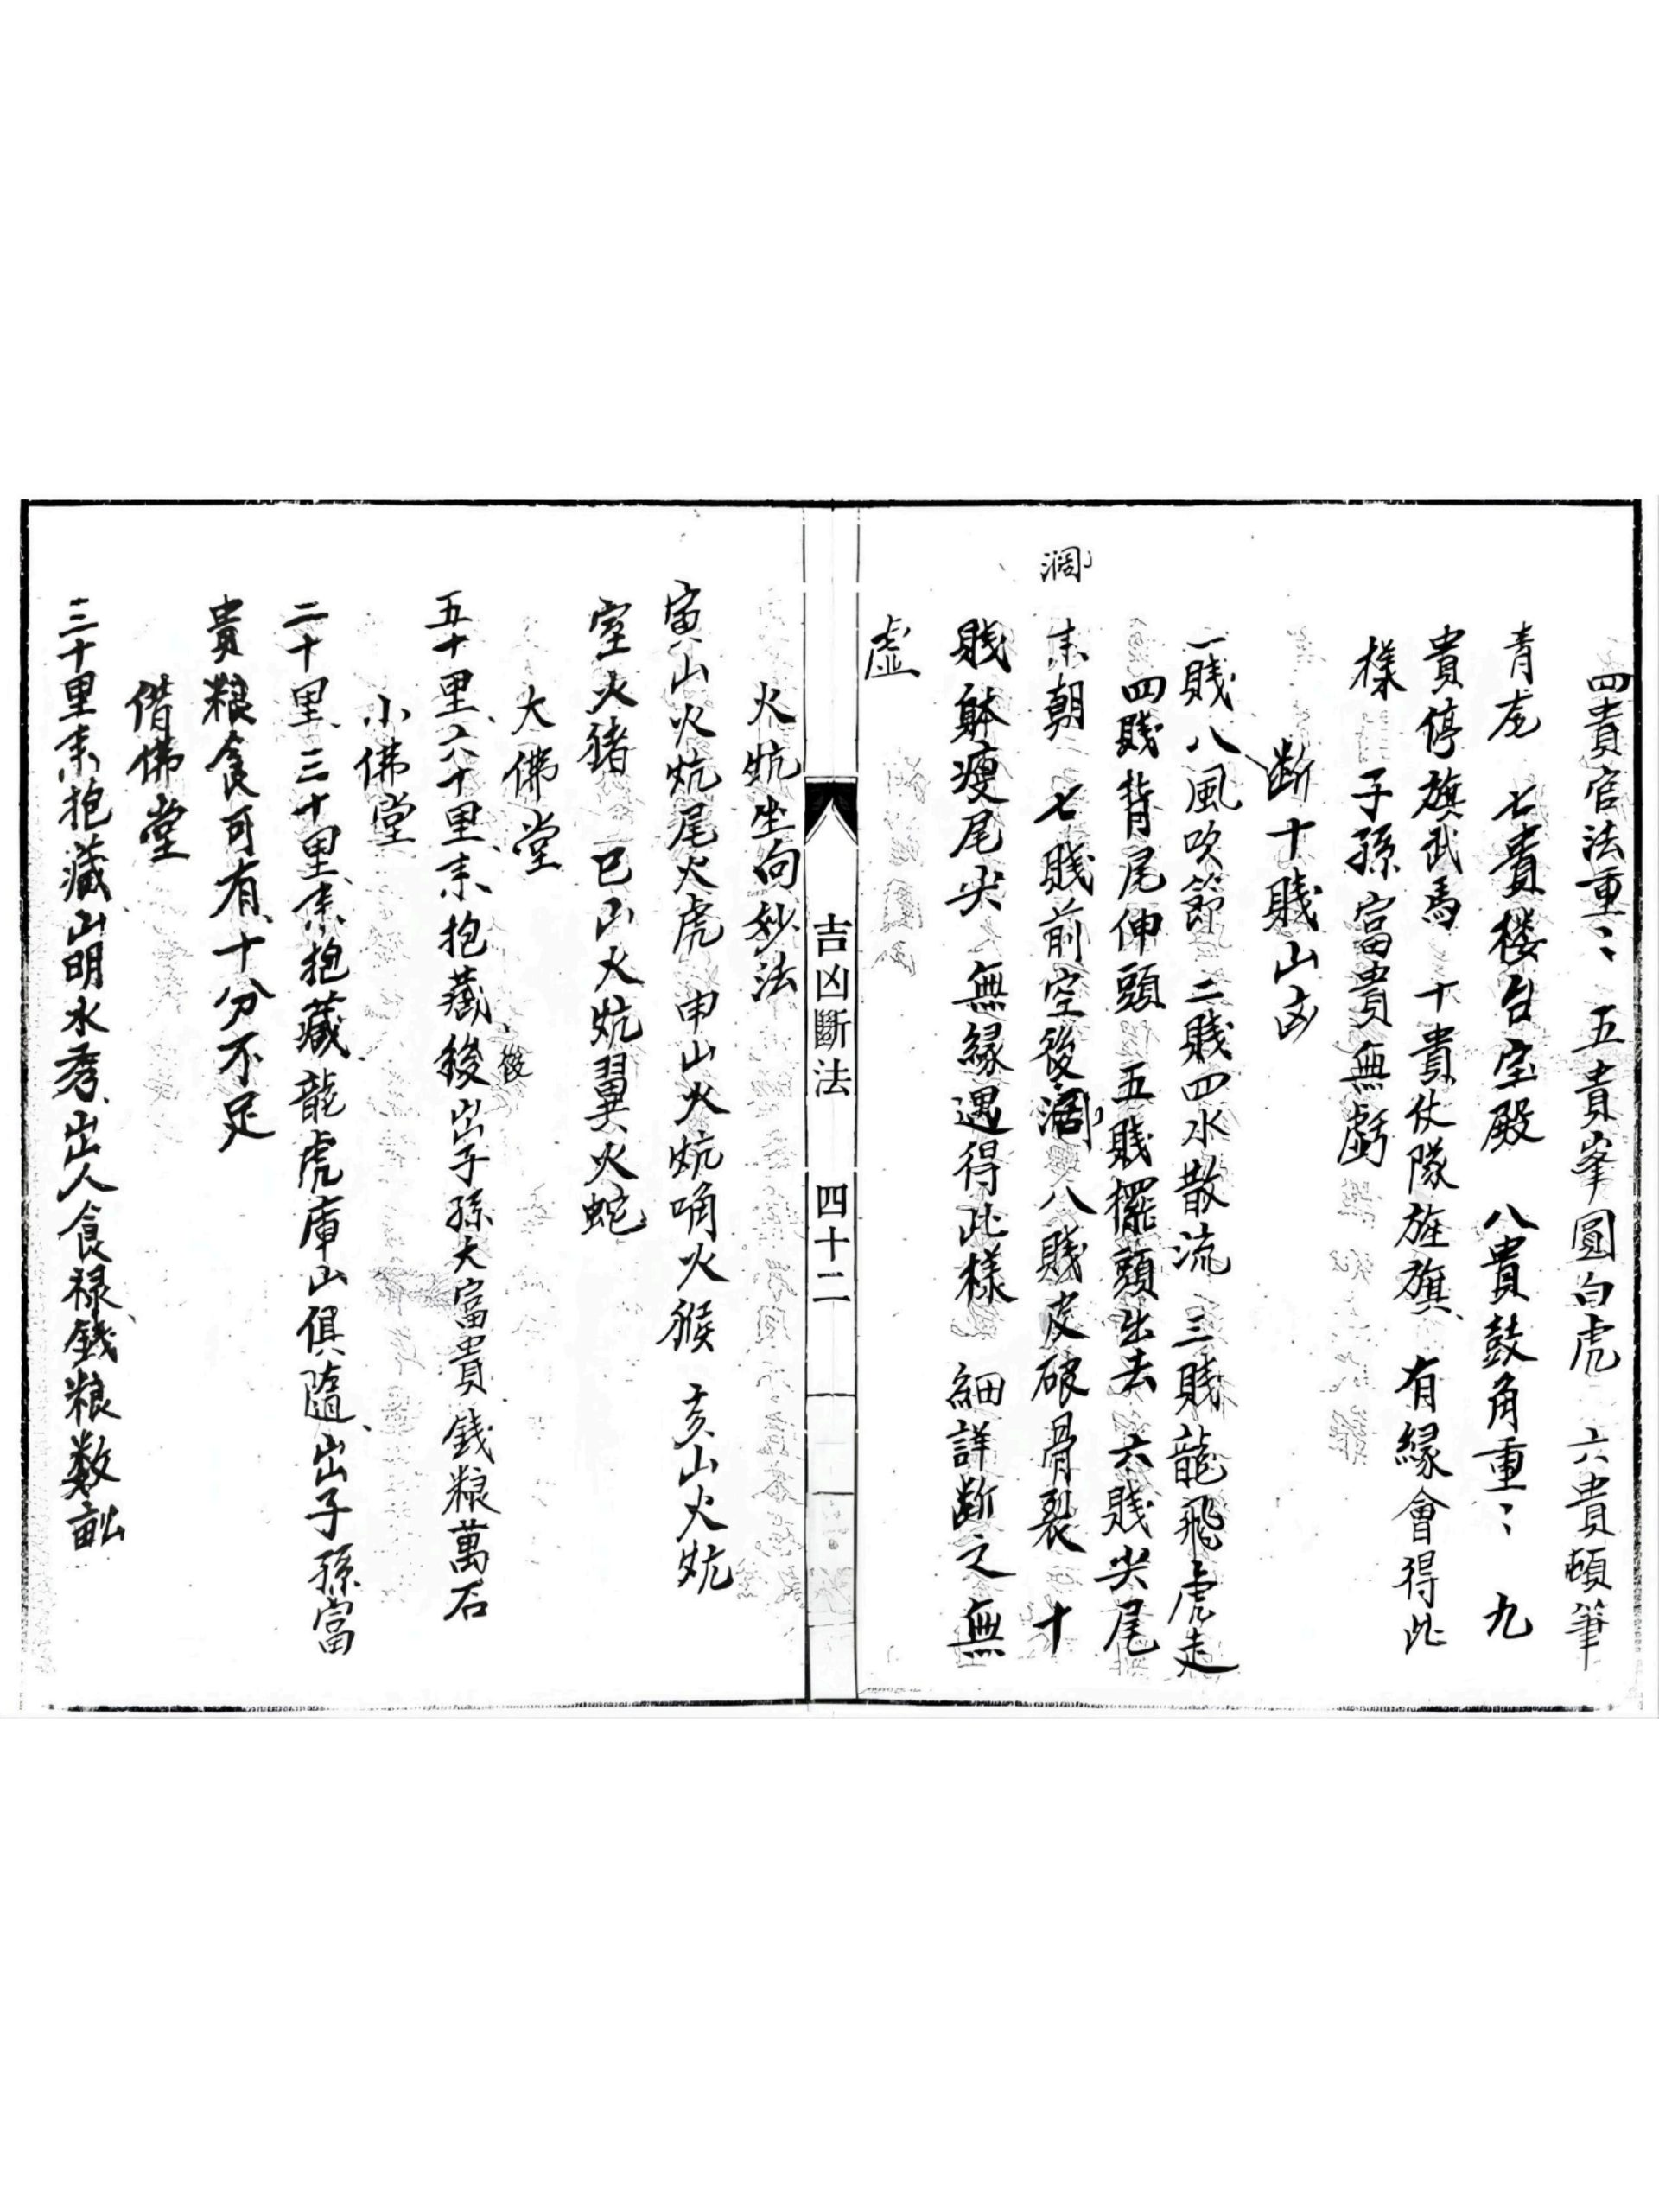 四貴官法重〻 五貴峯圓白虎 六貴頓筆
青龙 七貴楼台宝殿 八貴鼓角重〻 九
貴停旗武馬 十貴仗隊旌旗 有緣會得此
樣 子孫富貴無虧
断十賤山凶
一賤八風吹節 二賤四水散流 三賤龍飛虎走
四賤背尾伸頭 五賤擺頭出去 六賤尖尾
来朝 七賤前空後濶 八賤皮破骨裂 十
濶
賤躰瘦尾尖 無緣遇得此樣 細詳断之無
虛
吉凶斷法 四十二
火炕坐向妙法
寅山火炕尾火虎 申山火炕嘴火猴 亥山火炕
室火猪 巳山火炕翼火蛇
大佛堂
五十里六十里来抱藏後出子孫大富貴錢糧萬石
後
小佛堂
二十里三十里来抱藏龍虎庫山俱隨出子孫富
貴粮食可有十分不足
借佛堂
三十里来抱藏山明水秀出人食禄錢粮数畝